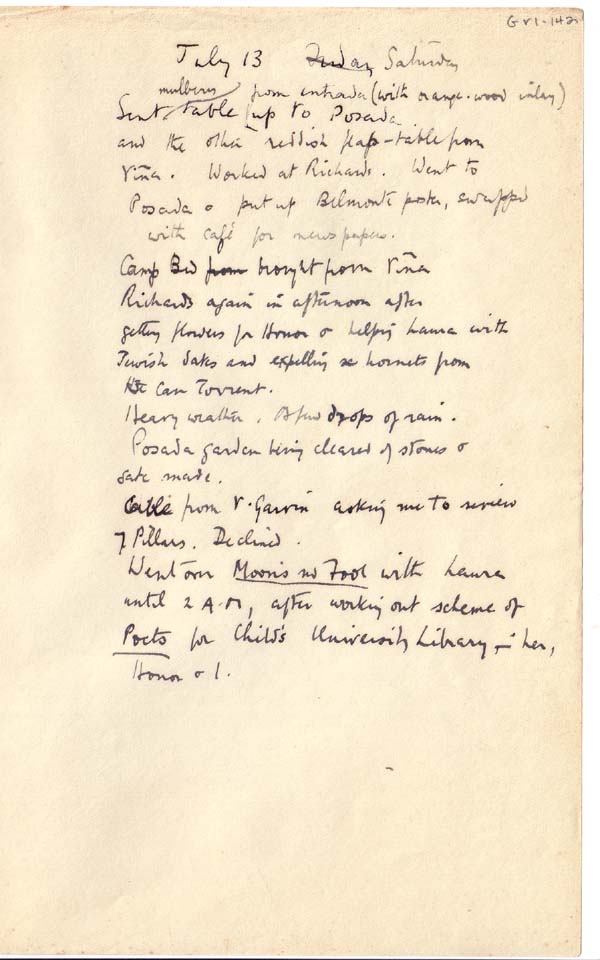 GV1-142
July 13 Friday Saturday
mulberry from entrada (with orange-wood inlay)
Sent table up to Posada
and the other reddish flap-table from
Viña. Worked at Richards. Went to
Posada & put up Belmonte poster, swapped
with café for newspapers.
Camp Bed from brought from Viña
Richards again in afternoon after
getting flowers for Honor & helping Laura with
Jewish dates and expelling hornets from
Can Torrent.
Heavy weather. A few drops of rain.
Posada garden being cleared of stones &
gate made.
Cable from V. Garvin asking me to review
7 Pillars. Declined.
Went over Moon's no Fool with Laura
until 2 A.M, after working out scheme of
Poets for Child's University Library, – her,
Honor & I.